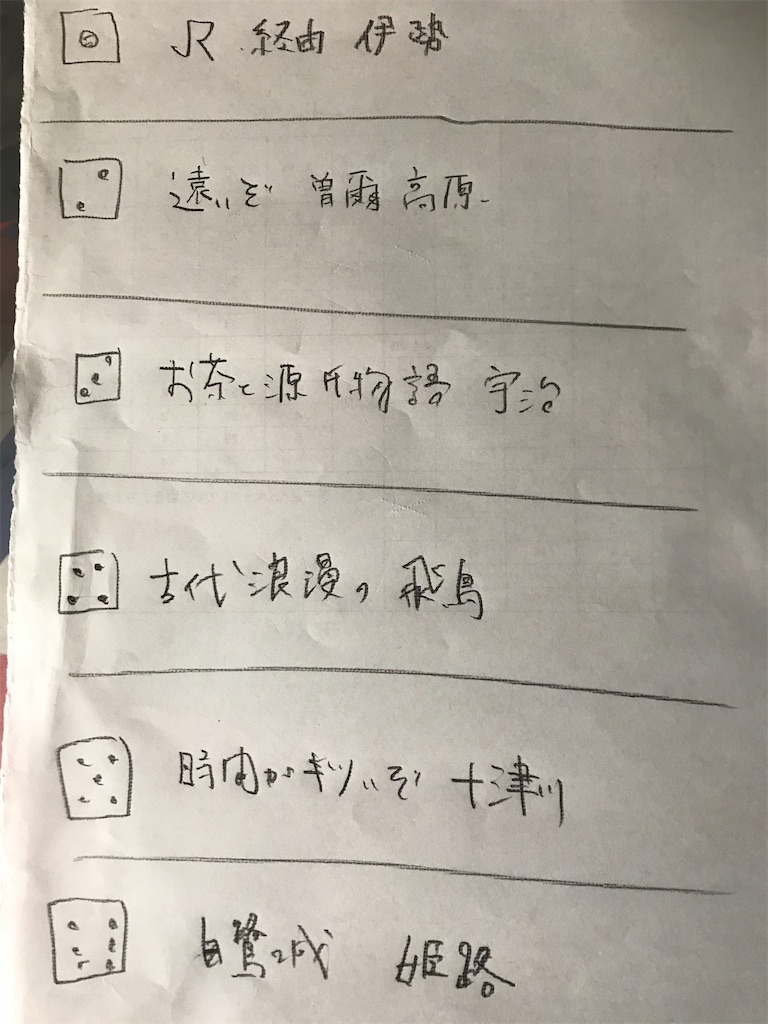 JR 経由 伊勢
遠いぞ 曽爾高原
お茶と源氏物語 宇治
古代浪漫の 飛鳥
時間がキツいぞ 十津川
白鷺の城 姫路